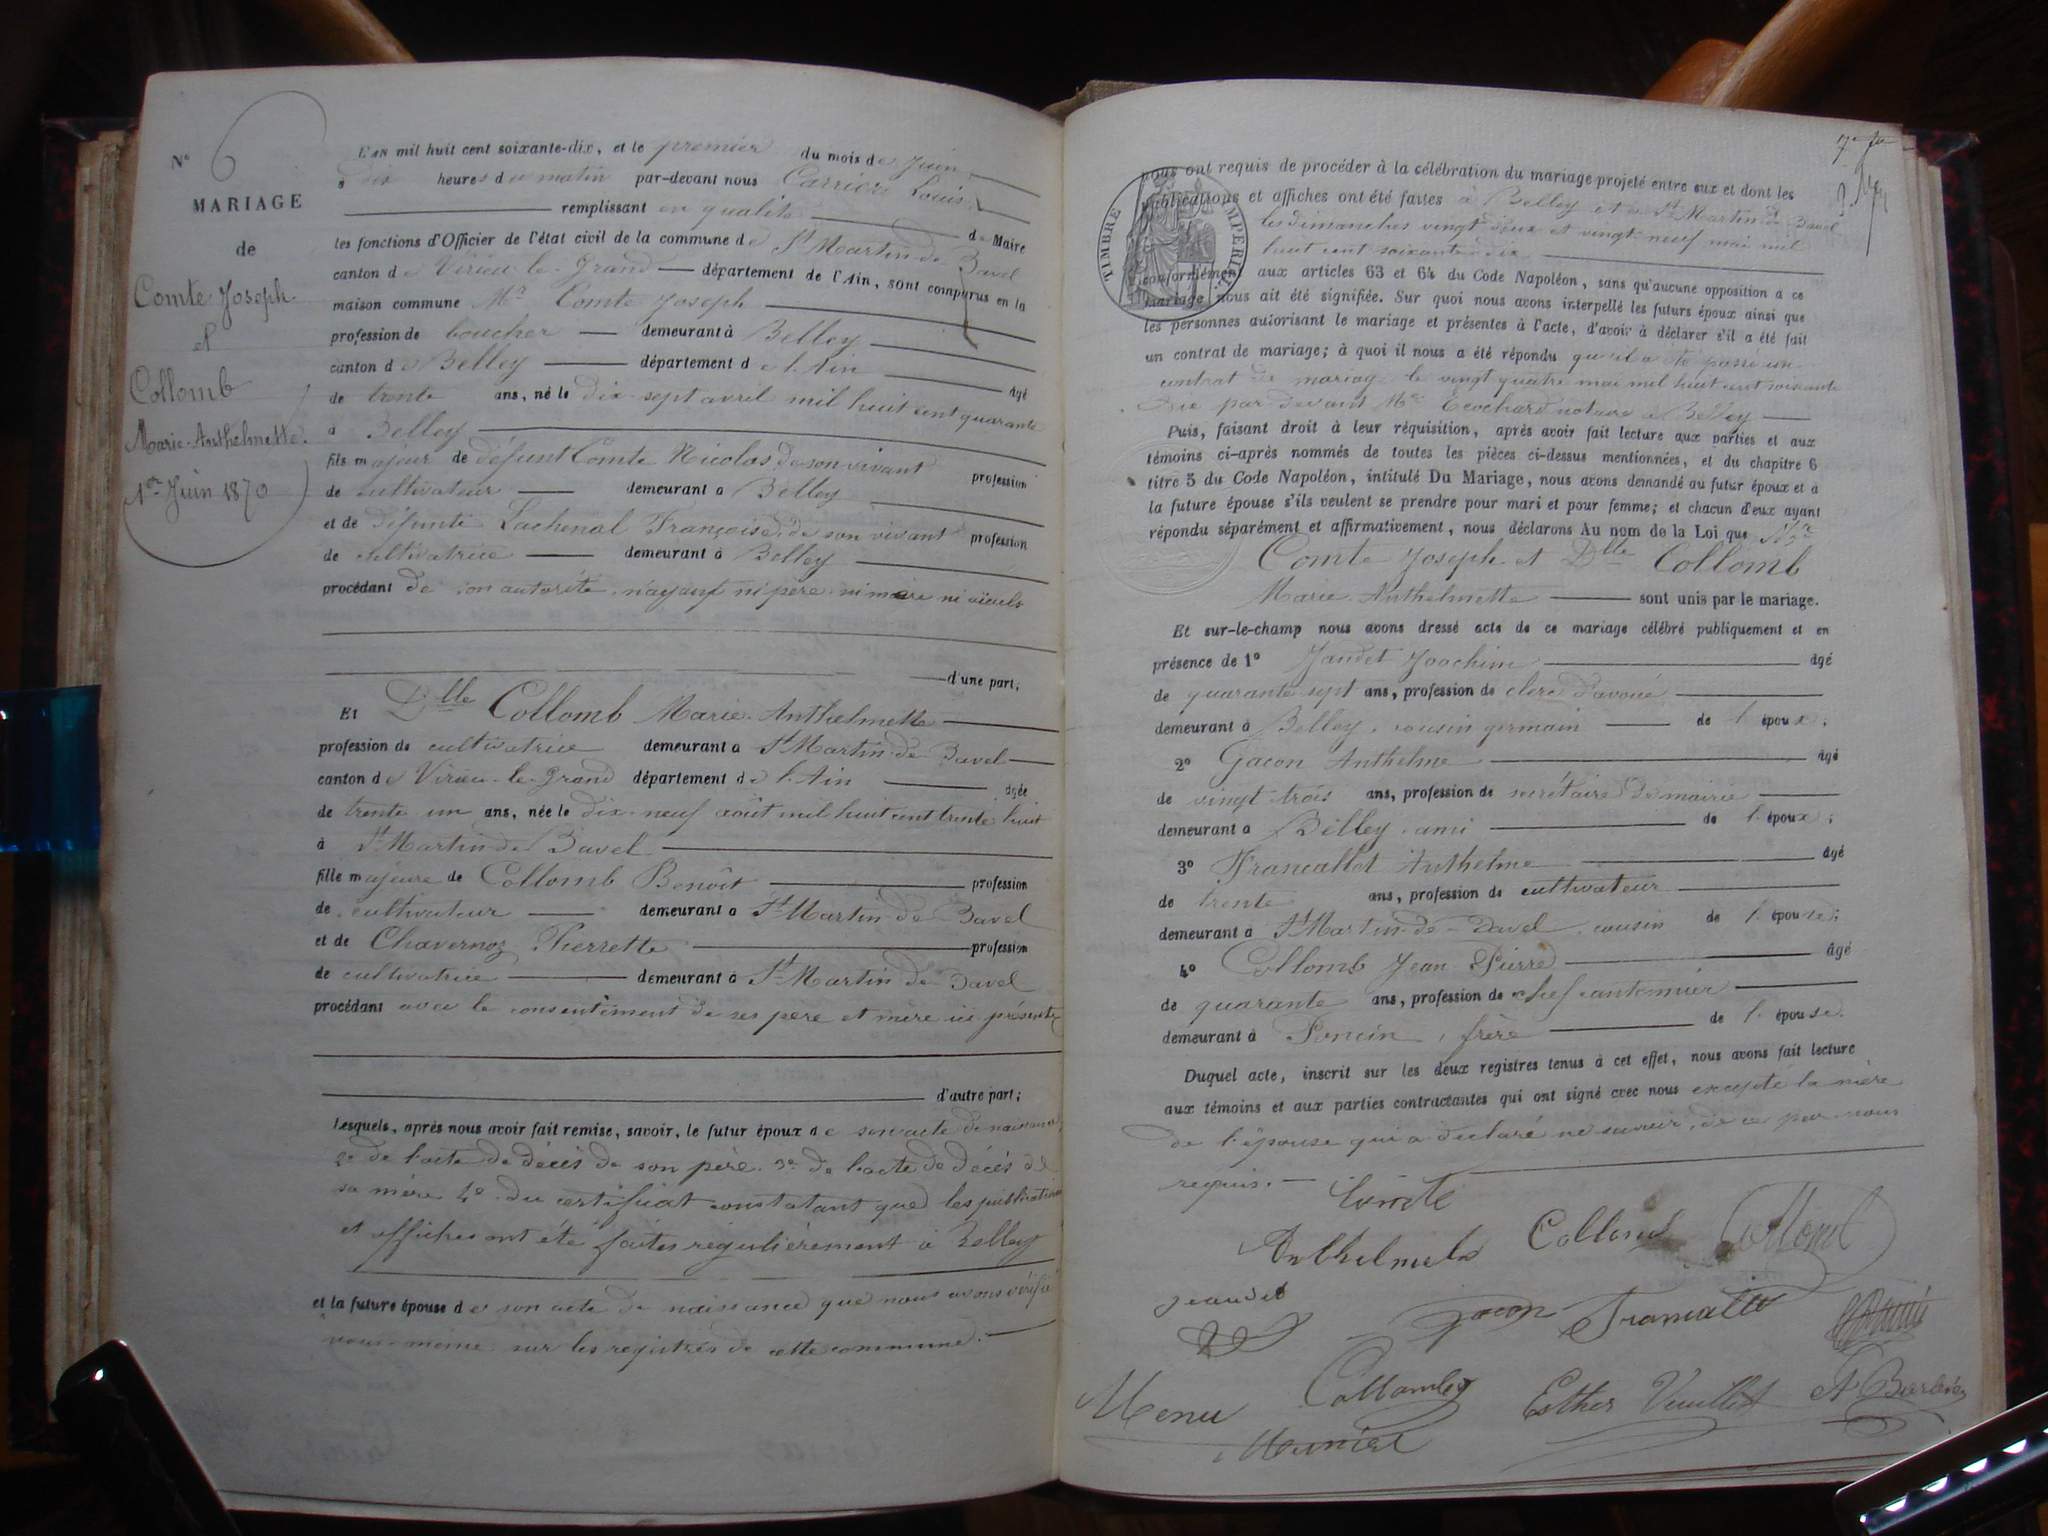 N° 6
MARIAGE
de
Comte Joseph
et
Collomb
Marie-Anthelmette.
1er Juin 1870
L'AN mil huit cent soixante-dix, et le premier du mois de Juin,
à dix heures du matin par-devant nous Carrier Louis,
remplissant en qualité de Maire
les fonctions d'Officier de l'état civil de la commune de St Martin-de-Bavel
canton de Virieu-le-Grand département de l'Ain, sont comparus en la
maison commune Mr Comte Joseph
profession de boucher demeurant à Belley
canton de Belley département de l'Ain
âgé
de trente ans, né le dix-sept avril mil huit cent quarante
à Belley
fils majeur de défunt Comte Nicolas, de son vivant profession
de cultivateur demeurant à Belley
et de défunte Lachenal Françoise, de son vivant profession
de cultivatrice demeurant à Belley
procédant de son autorité n'ayant ni père ni mère ni aïeuls
d'une part;
Et Dlle Collomb Marie-Anthelmette
profession de cultivatrice demeurant à St Martin-de-Bavel
canton de Virieu-le-Grand département de l'Ain âgée
de trente un ans, née le dix-neuf août mil huit cent trente huit
à St Martin-de-Bavel
fille majeure de Collomb Benoît profession
de cultivateur demeurant à St Martin-de-Bavel
et de Chavernoz Pierrette profession
de cultivatrice demeurant à St Martin-de-Bavel
procédant avec le consentement de ses père et mère ici présents
d'autre part;
Lesquels, après nous avoir fait remise, savoir, le futur époux de son acte de naissance,
2° de l'acte de décès de son père 3° de l'acte de décès de
sa mère 4° du certificat constatant que les publications
et affiches ont été faites régulièrement à Belley
et la future épouse de son acte de naissance que nous avons vérifié
nous-même sur les registres de cette commune.
nous ont requis de procéder à la célébration du mariage projeté entre eux et dont les
publications et affiches ont été faites à Belley et à St Martin-de-Bavel
les dimanches vingt-deux et vingt-neuf mai mil
huit cent soixante-dix
conformément aux articles 63 et 64 du Code Napoléon, sans qu'aucune opposition a ce
mariage nous ait été signifiée. Sur quoi nous avons interpellé les futurs époux ainsi que
les personnes autorisant le mariage et présentes à l'acte, d'avoir à déclarer s'il a été fait
un contrat de mariage; à quoi il nous a été répondu qu'il a été passé un
contrat de mariage le vingt quatre mai mil huit cent soixante
dix par devant Me Ecochard notaire à Belley
Puis, faisant droit à leur réquisition, après avoir fait lecture aux parties et aux
témoins ci-après nommés de toutes les pièces ci-dessus mentionnées, et du chapitre 6
titre 5 du Code Napoléon, intitulé Du Mariage, nous avons demandé au futur époux et à
la future épouse s'ils veulent se prendre pour mari et pour femme; et chacun d'eux ayant
répondu séparément et affirmativement, nous déclarons Au nom de la Loi que Mr
Comte Joseph et Dlle Collomb
Marie-Anthelmette sont unis par le mariage.
Et sur-le-champ nous avons dressé acte de ce mariage célébré publiquement et en
présence de 1° Jandet Joachim âgé
de quarante sept ans, profession de clerc d'avoué
demeurant à Belley, cousin germain de l'époux;
2° Gacon Anthelme âgé
de vingt trois ans, profession de secrétaire de mairie
demeurant à Belley, ami de l'époux;
3° Francallet Anthelme âgé
de trente ans, profession de cultivateur
demeurant à St Martin-de-Bavel, cousin de l'épouse;
4° Collomb Jean Pierre âgé
de quarante ans, profession de chef cantonnier
demeurant à Poncin, frère de l'épouse.
Duquel acte, inscrit sur les deux registres tenus à cet effet, nous avons fait lecture
aux témoins et aux parties contractantes qui ont signé avec nous excepté la mère
de l'épouse qui a déclaré ne savoir, de ce par nous
requis.
Comte
Anthelmete Collomb Collomb
Jeandet Gacon Francallet
Menu Collomb Esther Vuillet
Meunier
TIMBRE IMPERIAL